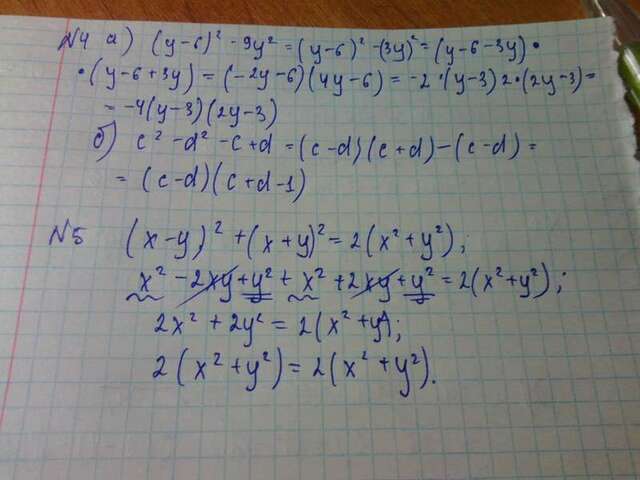 №4 а) (y-6)² - 9y² = (y-6)² - (3y)² = (y-6-3y) •
• (y-6+3y) = (-2y-6)(4y-6) = -2 • (y-3) 2 • (2y-3) =
= -4(y-3)(2y-3)
б) c² - d² - c + d = (c-d)(c+d) - (c-d) =
= (c-d)(c+d-1)
№5 (x-y)² + (x+y)² = 2(x²+y²);
x² - 2xy + y² + x² + 2xy + y² = 2(x²+y²);
2x² + 2y² = 2(x²+y²);
2(x²+y²) = 2(x²+y²).